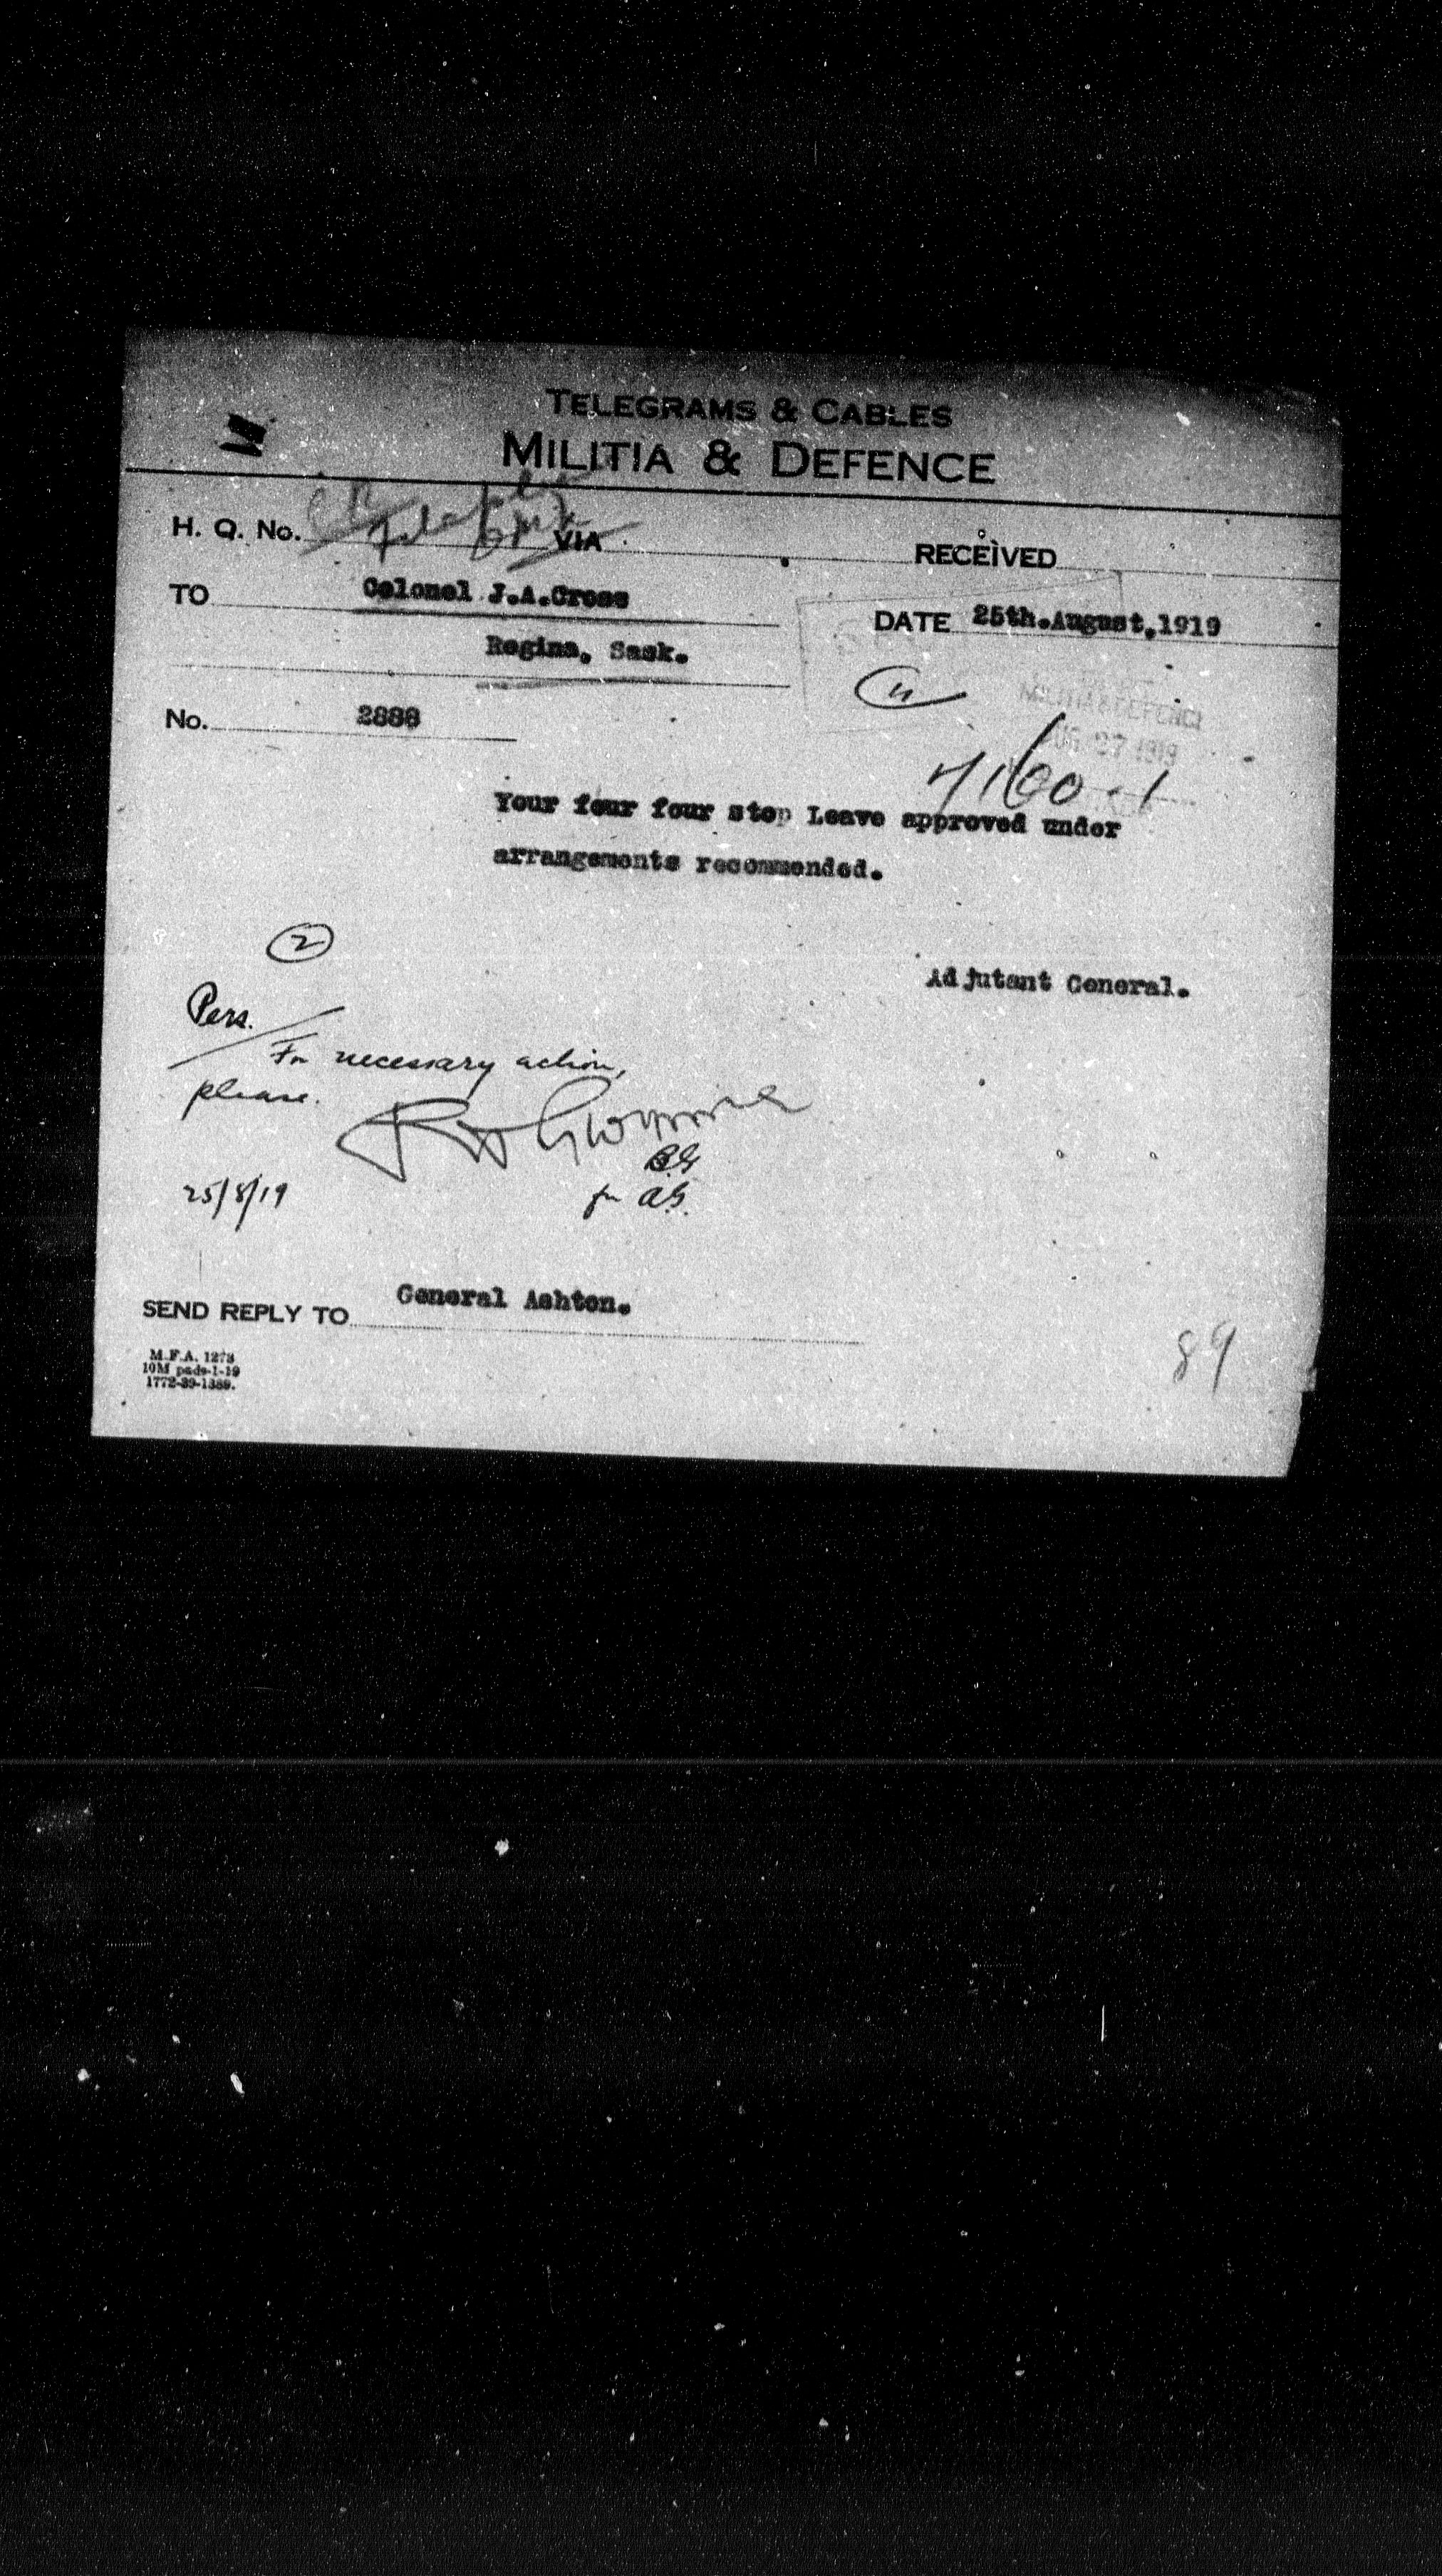 TELEGRAMS & CABLES
MILITIA & DEFENCE
H. Q. No. VIA RECEIVED
TO Colonel J.A.Cross
DATE 25th.August,1919
Regina, Sask.
MILITIA & DEFENCE
AUG 27 1919
No. 2888
Your four four stop Leave approved under
arrangements recommended.
2
Adjutant General.
Pers.
For necessary action,
please.
B.G
for A.G.
25/8/19
SEND REPLY TO General Ashton.
M.F.A. 1273
10M pads-1-19
1772-39-1389.
89